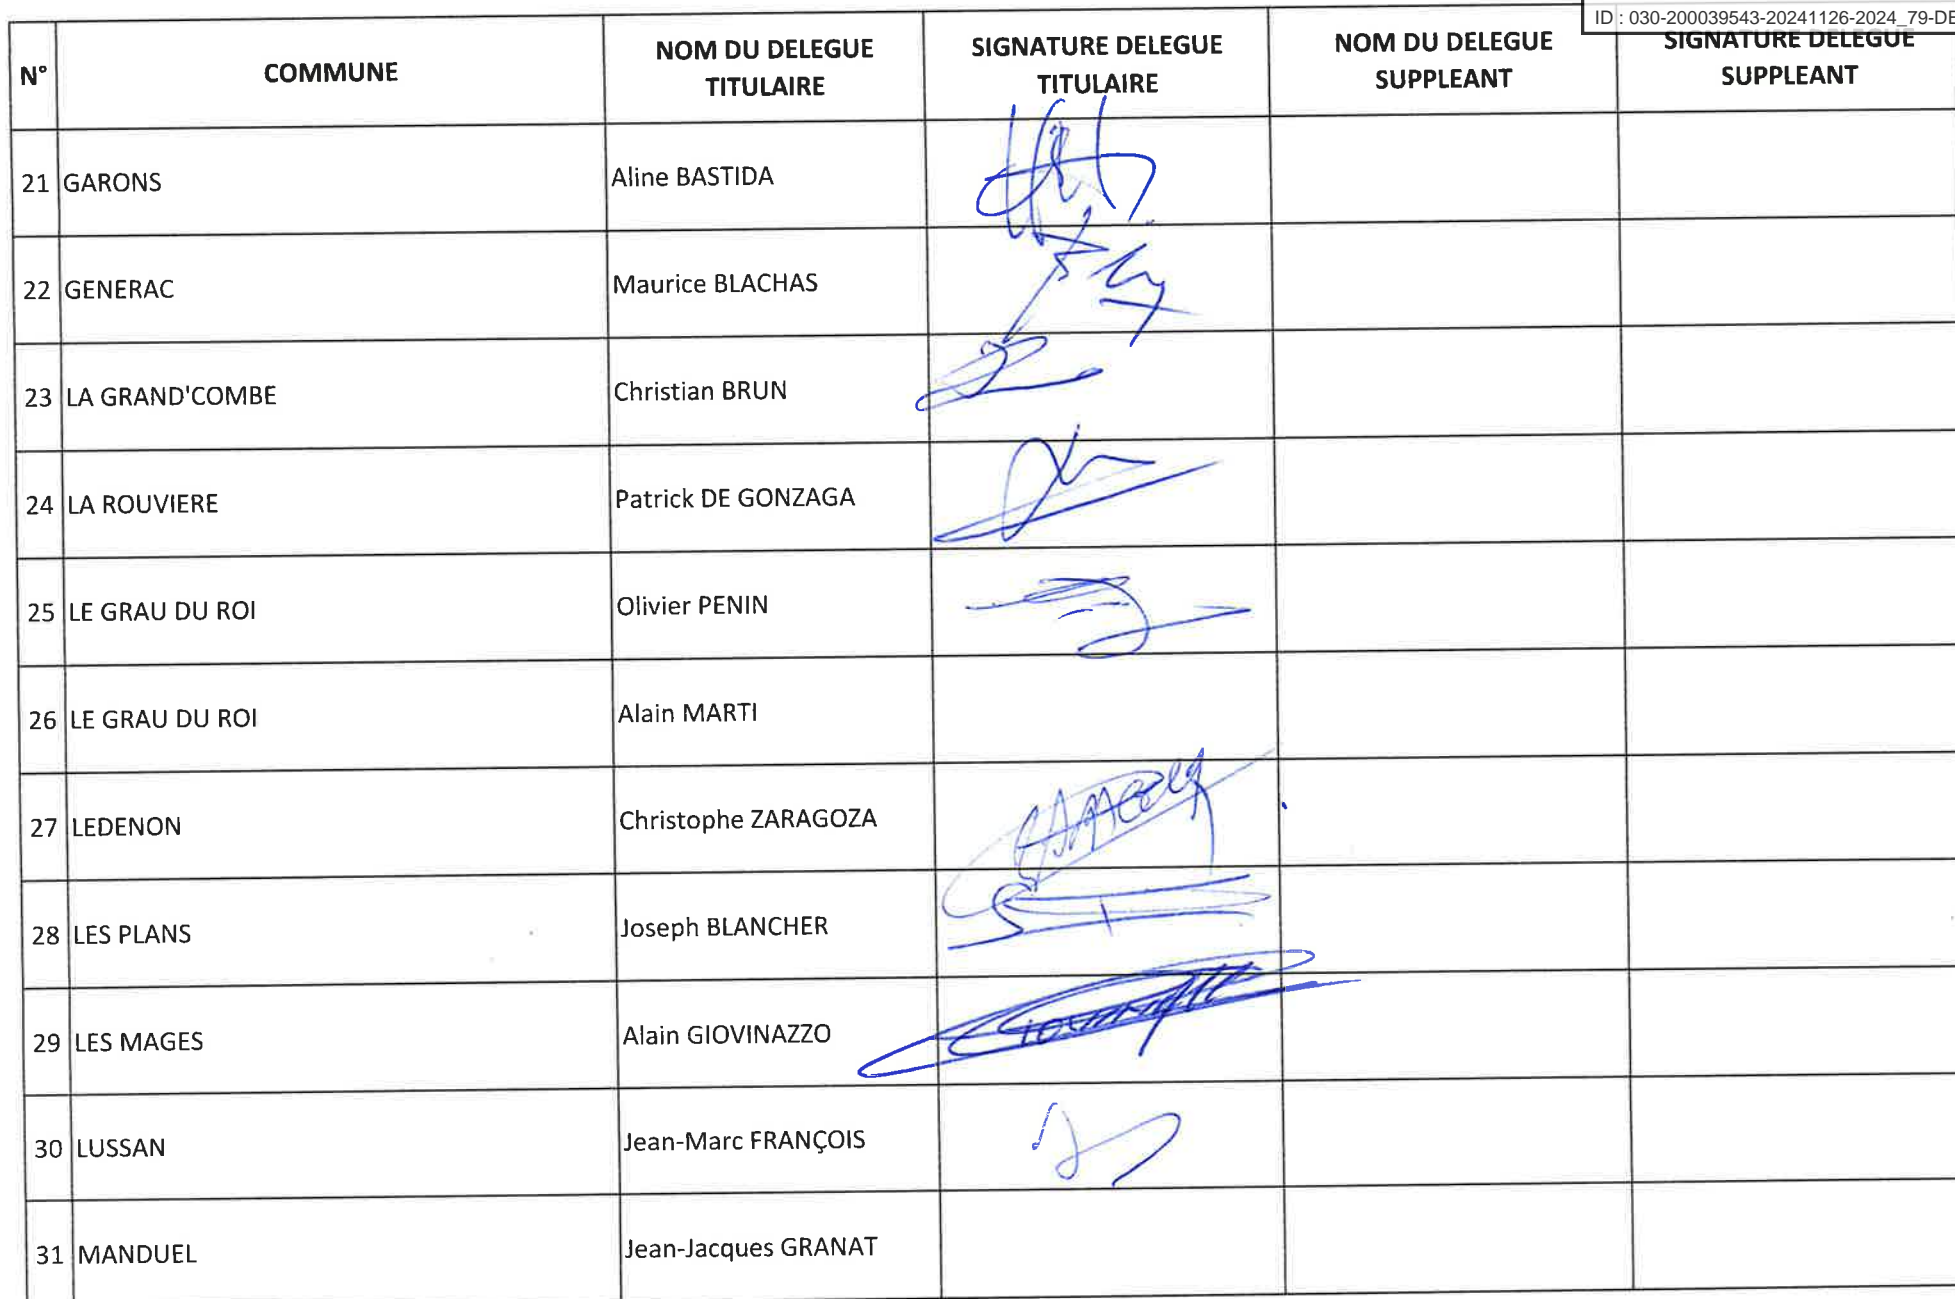 ID : 030-200039543-20241126-2024_79-DE
N°
COMMUNE
NOM DU DELEGUE
TITULAIRE
SIGNATURE DELEGUE
TITULAIRE
NOM DU DELEGUE
SUPPLEANT
SIGNATURE DELEGUE
SUPPLEANT
21 GARONS Aline BASTIDA
22 GENERAC Maurice BLACHAS
23 LA GRAND'COMBE Christian BRUN
24 LA ROUVIERE Patrick DE GONZAGA
25 LE GRAU DU ROI Olivier PENIN
26 LE GRAU DU ROI Alain MARTI
27 LEDENON Christophe ZARAGOZA
28 LES PLANS Joseph BLANCHER
29 LES MAGES Alain GIOVINAZZO
30 LUSSAN Jean-Marc FRANÇOIS
31 MANDUEL Jean-Jacques GRANAT